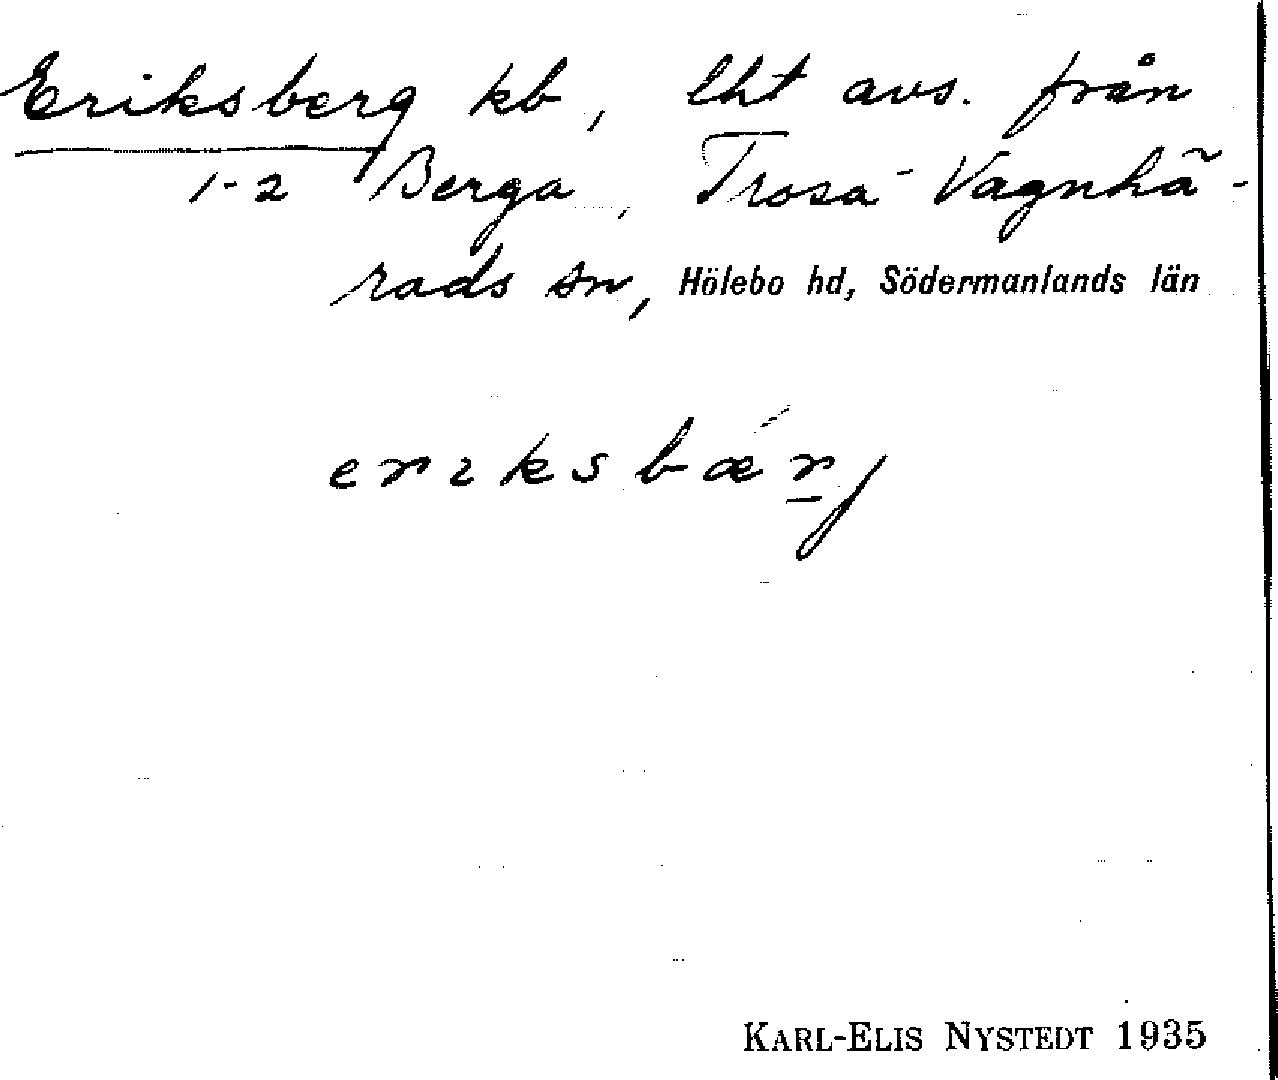 Eriksberg kb, lht avs. från
1-2 Berga, Trosa-Vagnhä-
rads sn, Hölebo hd, Södermanlands län
eriksbæ´r̲j
KARL-ELIS NYSTEDT 1935